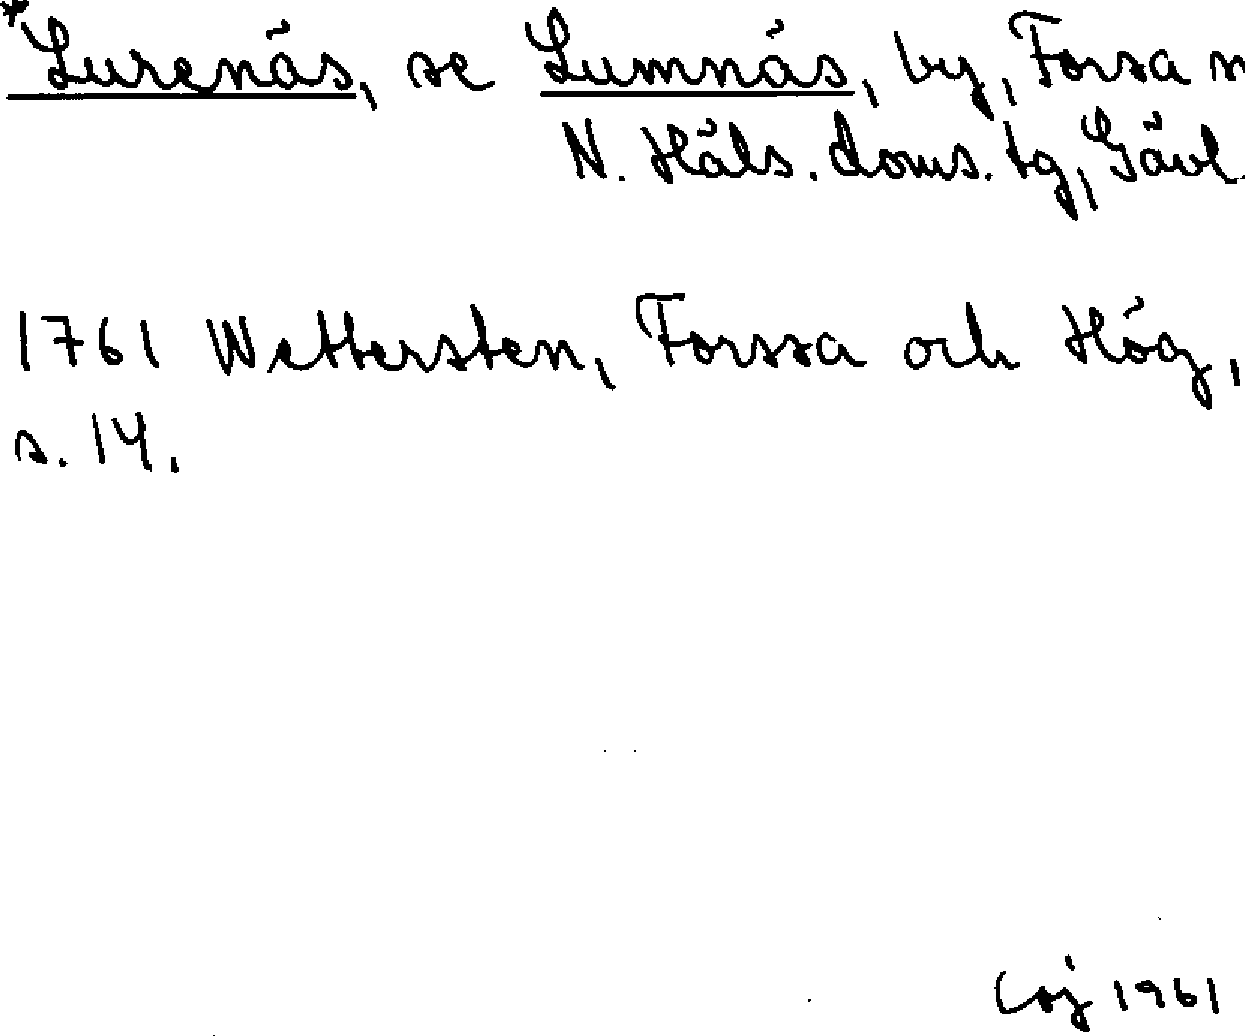 *Lurenäs, se Lumnäs, by, Forsa
N. Häls. doms. tg, Gävl.
1761 Wettersten, Forssa och Hög,
s. 14.
1961